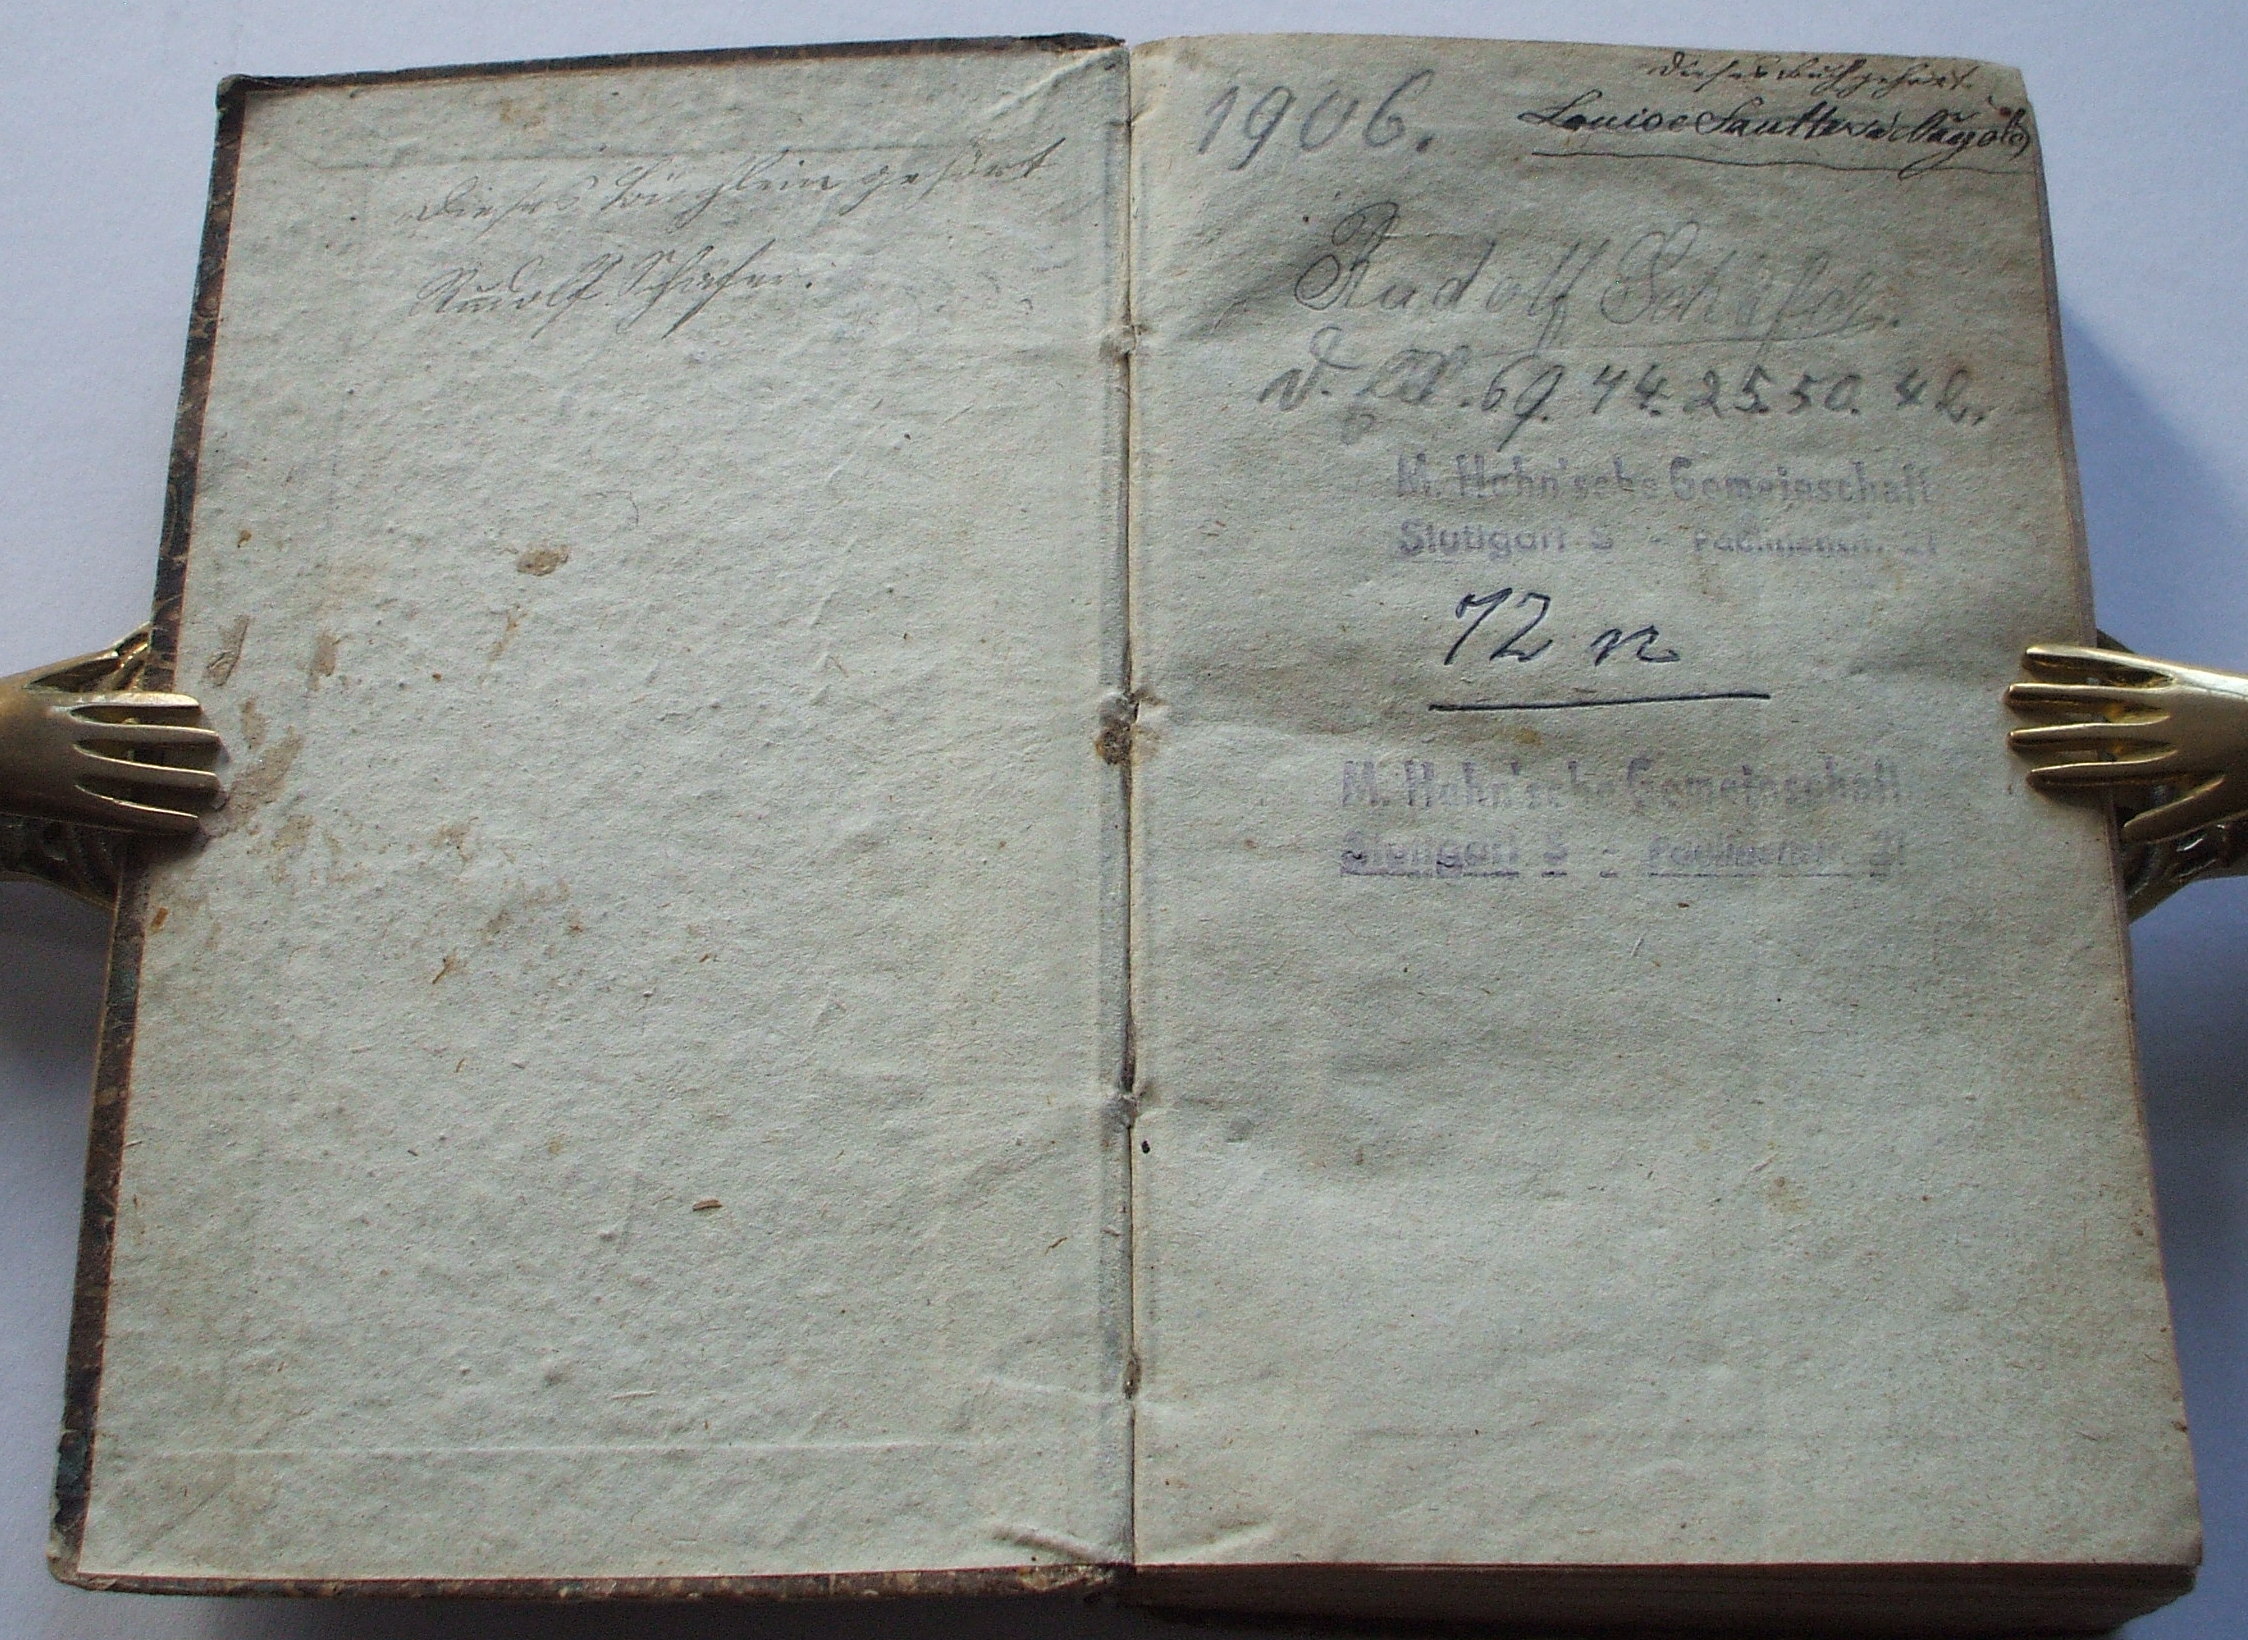 Dieses Büchlein gehört
Rudolf Schäfer.
1906.
Dieses Buch gehört
Louise Sautter
Rudolf Schäfer.
69. 44. 25. 50. 42.
M. Hahn'sche Gemeinschaft
Stuttgart S - Paulinenstr. 21
72 n
M. Hahn'sche Gemeinschaft
Stuttgart S - Paulinenstr. 21